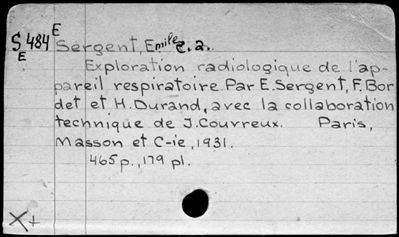 S484E Sergent, Emile e.a.
E
Exploration radiologique de l'ap-
pareil respiratoire. Par E. Sergent, F. Bor
det et H. Durand, avec la collaboration
technique de J. Couvreux. Paris,
Masson et C-ie, 1931.
465 p., 179 pl.
X+